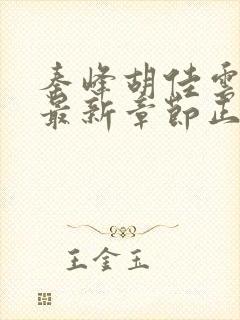 秦峰胡佳雪
最新章节正
王金玉